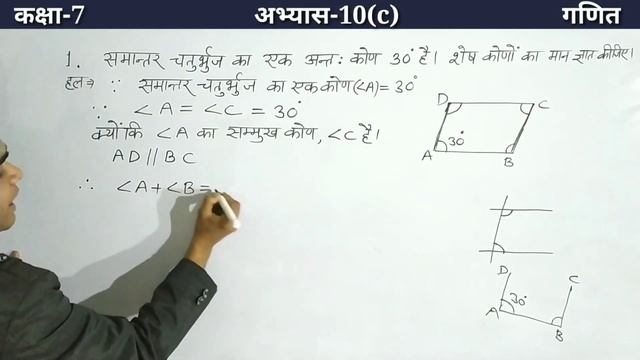 कक्षा-7 अभ्यास-10(c) गणित
1. समान्तर चतुर्भुज का एक अन्तः कोण 30° है। शेष कोणों का मान ज्ञात कीजिए।
हल⇒ ∵ समान्तर चतुर्भुज का एक कोण (∠A) = 30°
∵ ∠A = ∠C = 30°
क्योंकि ∠A का सम्मुख कोण, ∠C है।
AD || BC
∴ ∠A + ∠B =
D C
30°
A B
D C
30°
A B